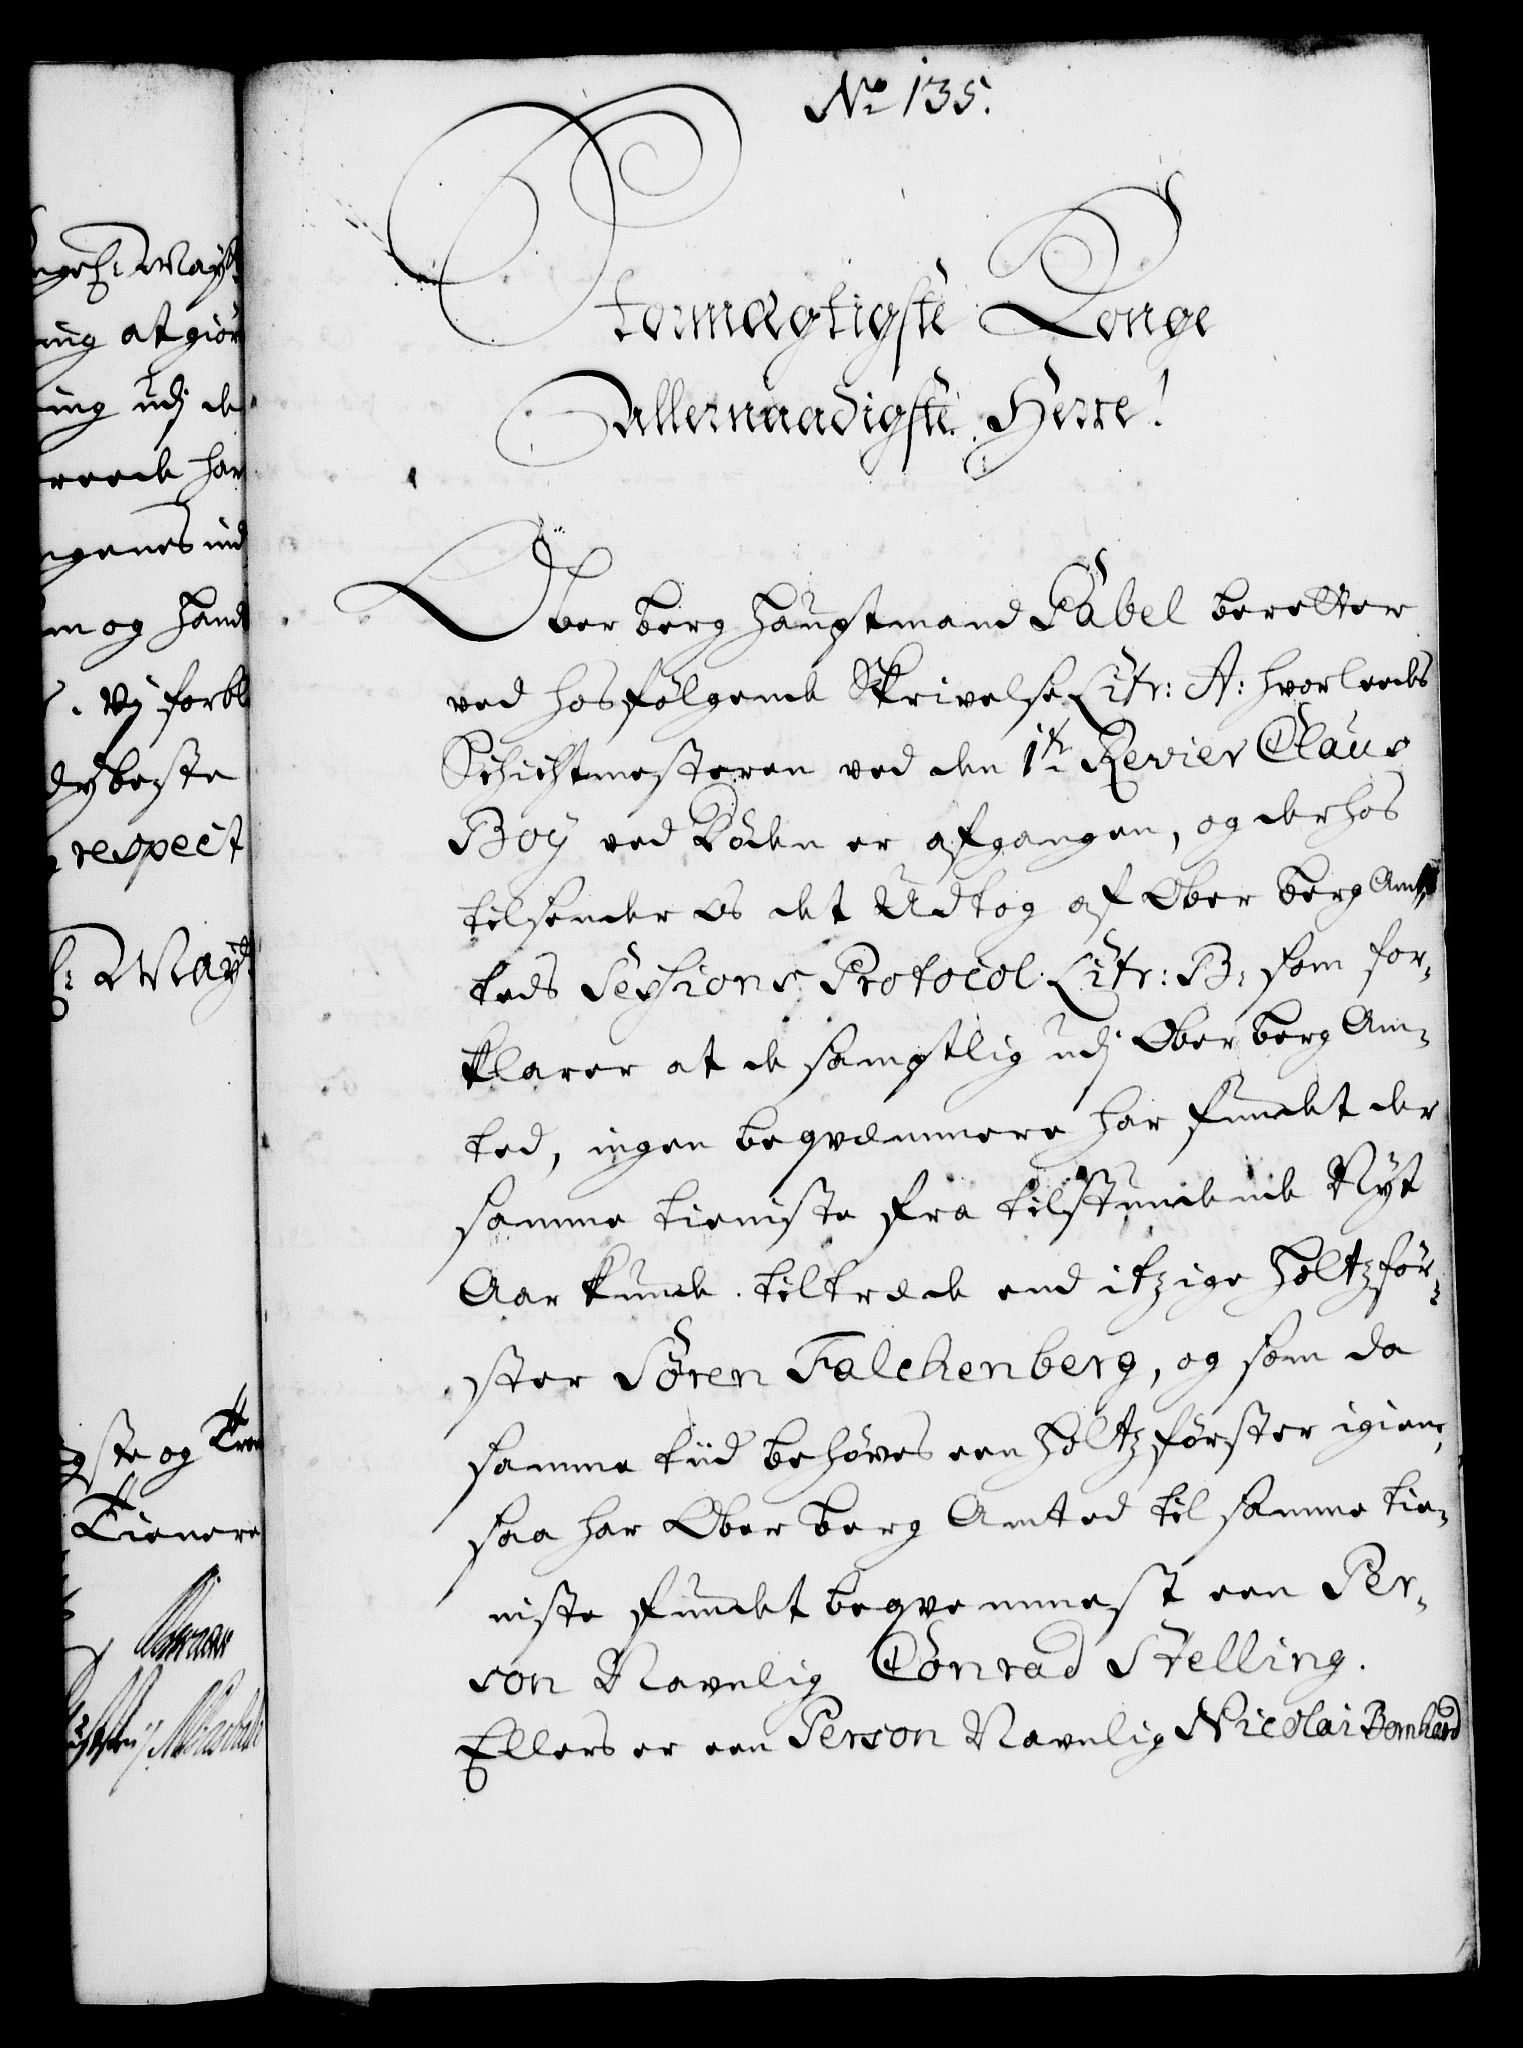 No 135.
Stormægtigste Konge
allernaadigste Herre!
Ober berg Hauptmand Pabel beretter
ved hosfølgende Skrivelse Litr: A: hvorleedes
Schichtmesteren ved den 1te Revier Claus
Boy ved Døden er afgangen, og derhos
tilsender os det Udtog af Ober berg Amb
teds Sessions Protocol Litr: B: som for-
klarer at de samptlig udj Ober berg Am-
ted, ingen beqvæmmere har fundet der
samme tieniste fra tilstundende Nyt
Aar kunde tiltræde end itzige Holtzför-
ster Sören Falchenberg, og som da
samme tiid behöves een Holtzförster igien,
saa har Ober berg Amted til samme tie-
niste fundet beqvemmest een Per-
son Navnlig Conrad Stelling.
Ellers er een Person Navnlig Nicolai Bernhard
ngel: May:
ing at giör
ing udj de
reede har
ngenes ind
m og Hand
. Vj forbl
dybeste
respect
l: May:
gste og Tro
Tienere